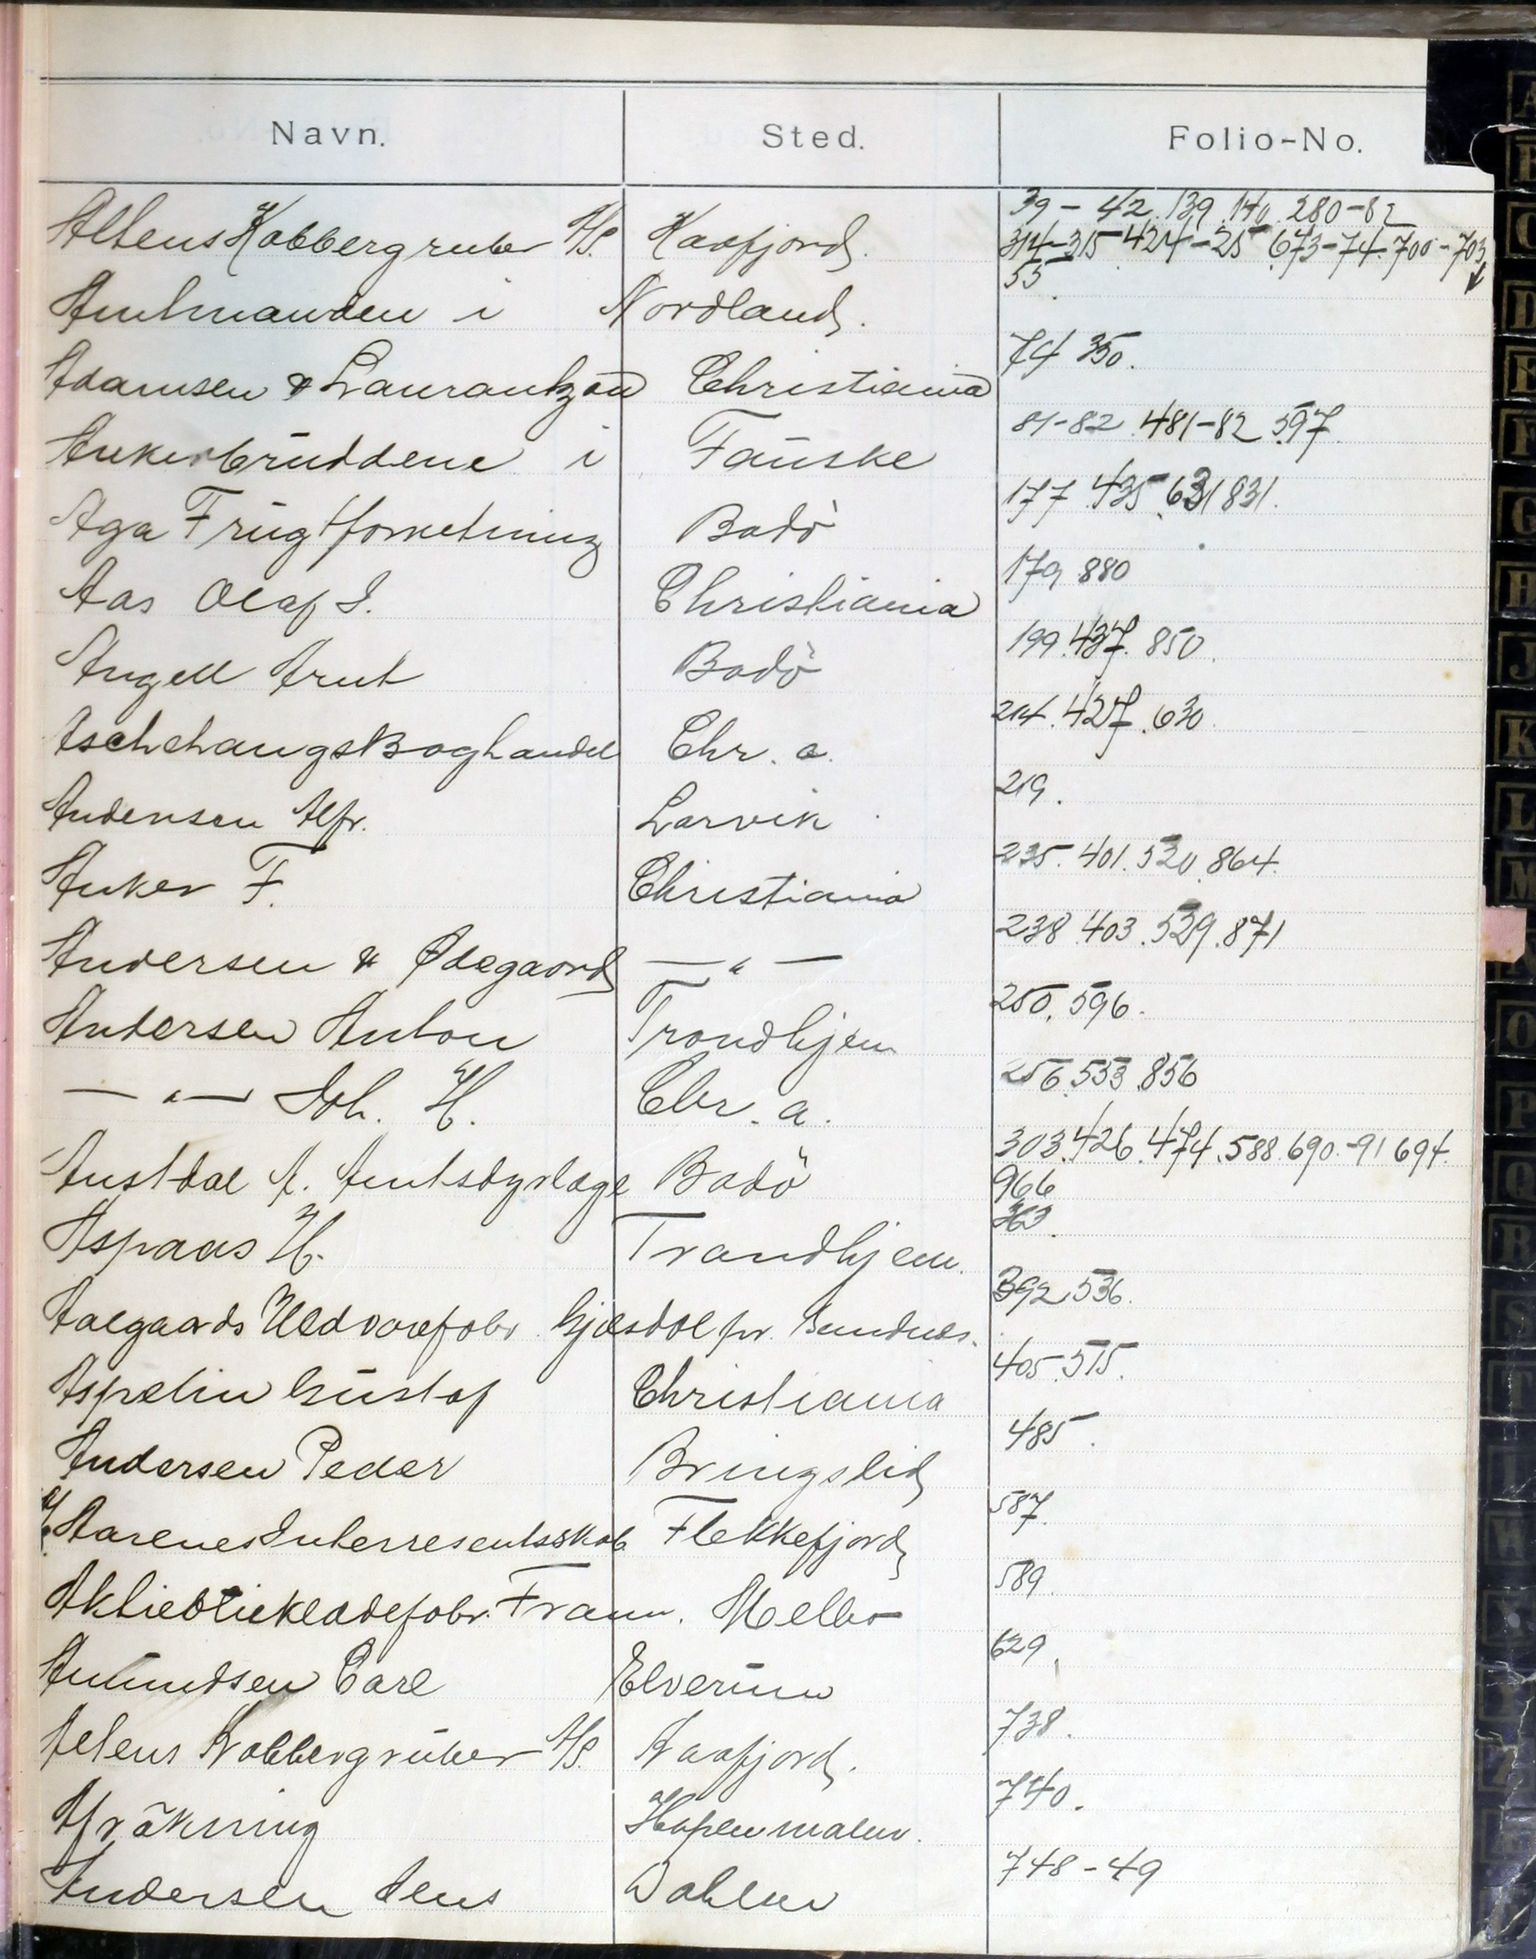 Navn. Sted. Folio-No.
39 - 42. 139. 140. 280-82
Altens Kobbergruber A/S. Kaafjord. 314-315 424-25 673-74. 700-703
55.
Amtmanden i Nordland.
Adamsen & Laurantzon Christiania 74 350.
Ankerbrüddene i Faüske 81-82. 481-82 597.
Aga Frügtforretning Bodö 177 435 631 831.
Aas Olaf I. Christiania 179 880
Angell Arnt Bodö 199. 437. 850.
Aschehougs Boghandel Chr. a. 214. 427. 630.
Andersen Alfr. Larvik 219.
Anker F. Christiania 235. 401. 520. 864.
Andersen & Ødegaard — „ — 238 403. 529. 871
Andersen Anton Trondhjem 250. 596.
— „ — Joh. H. Chr. a. 256. 533 856
Austdal A. Amtsdyrlæge Bodö 303. 426. 474. 588. 690.-91 694.
966
Aspaas H. Trondhjem. 363.
Aalgaards Uldvarefabr. Gjæsdal pr. Sandnes. 392 536.
Aspelin Güstaf Christiania 405. 515.
Andersen Peder Bringslid 485.
A/S. Aarenes Interresentsskab Flekkefjord 587.
Aktieblikeadefabr. Fram. Melbo 589.
Amündsen Carl Elverüm 629.
Altens Kobbergrüber A/S. Kaafjord. 738.
Afräkning Hopen malm. 740.
Andersen Jens Dahlen 748-49
A
B
C
D
E
F
G
H
J
K
L
M
O
P
Q
R
S
T